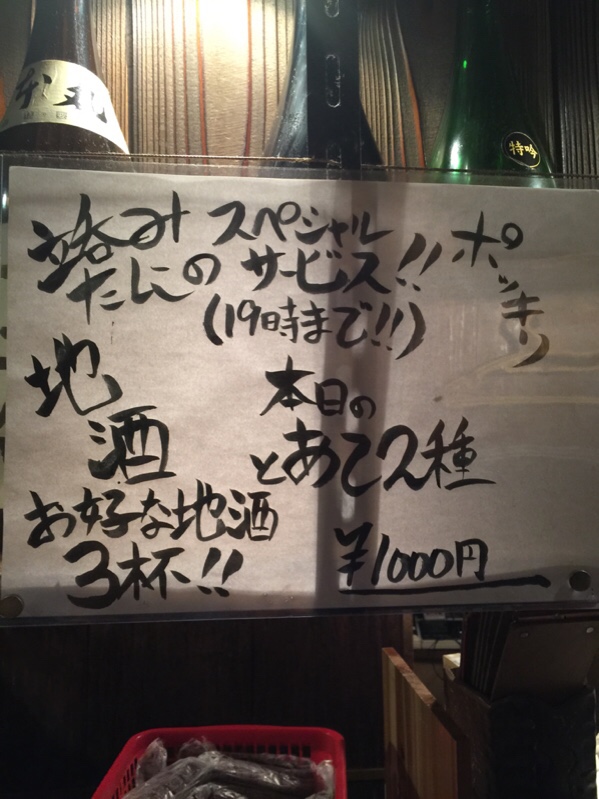 特吟
立呑み スペシャル
たにの サービス!!
(19時まで!!)
ポッキリ
地酒
お好な地酒
3杯!!
本日の
とあて2種
¥1000円